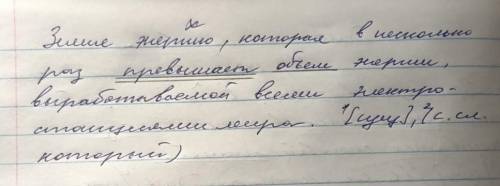 х
Земле энергию, которая в несколько
раз превышает объем энергии,
вырабатываемой всеми электро-
станциями мира. ¹[сущ], ²(с. сл.
который)